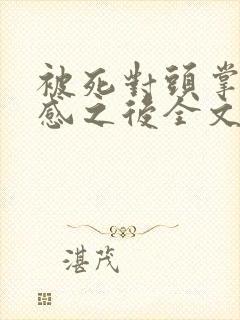 被死對頭掌
感之後全文
湛茂